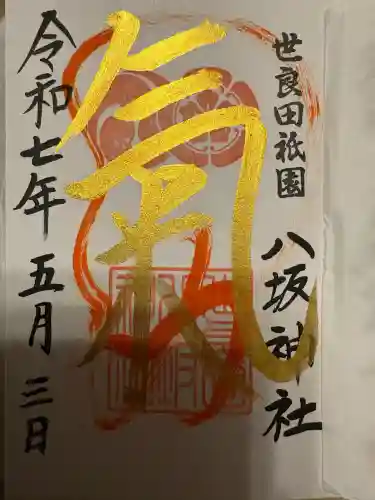 世良田祇園
八坂神社
氣
令和七年五月三日